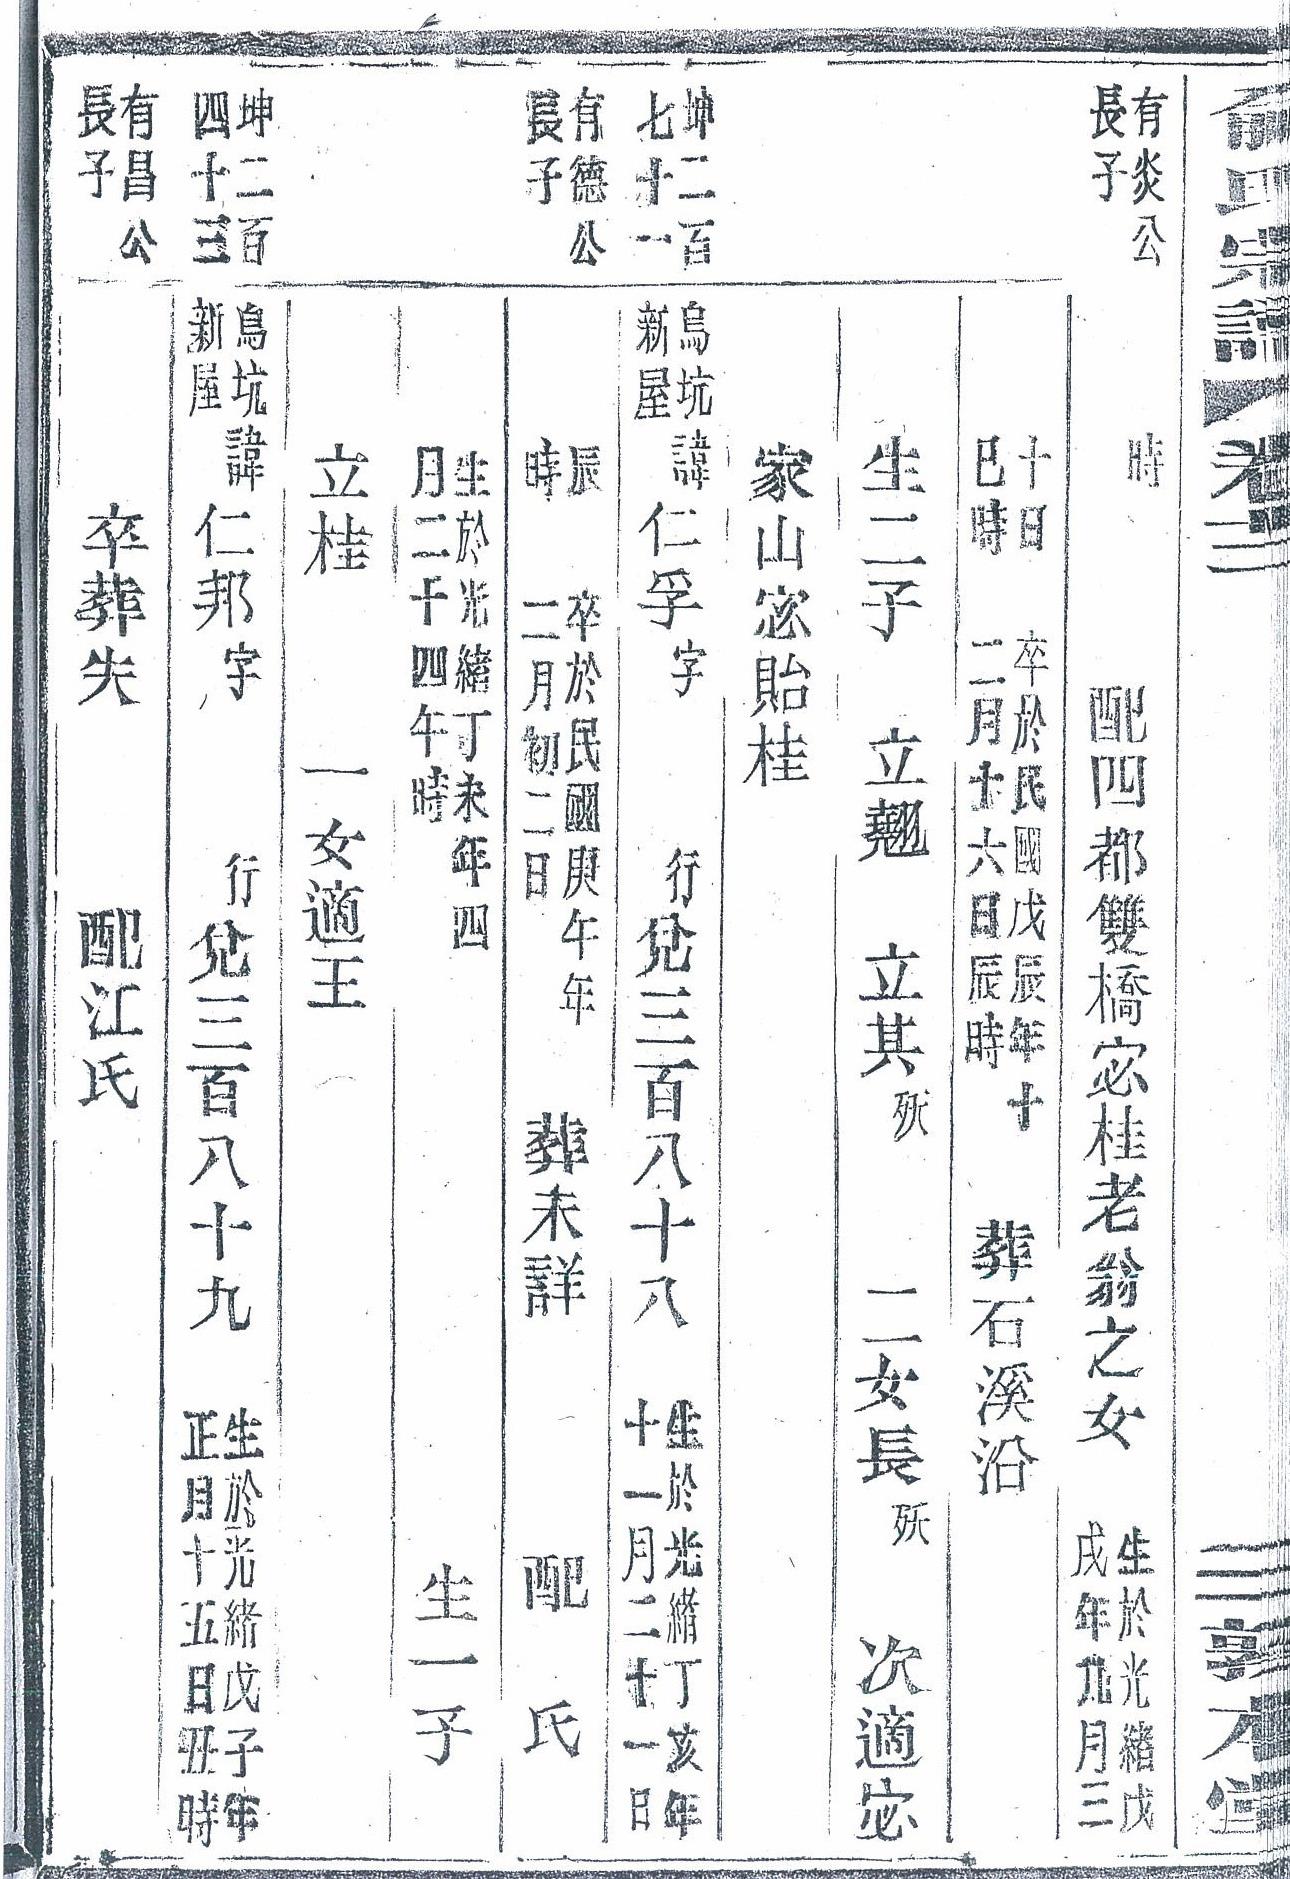 俞氏宗譜 卷三 三 敦本堂
有炎公
長子
時
配四都雙橋宓桂老翁之女
生於光緒戊
戌年九月三
十日
巳時
卒於民國戊辰年十
二月十六日辰時
葬石溪沿
生二子 立翹 立其 殀 二女長 殀 次適宓
家山宓貽桂
坤二百
七十一
烏坑
新屋
諱仁孚字 行兌三百八十八
生於光緒丁亥年
十一月二十一日
有德公
長子
辰
時
卒於民國庚午年
二月初二日
葬未詳 配 氏
生於光緒丁未年四
月二十四午時
生一子
立桂 一女適王
坤二百
四十三
烏坑
新屋
諱仁邦字 行兌三百八十九
生於光緒戊子年
正月十五日丑時
有昌公
長子
卒葬失 配江氏